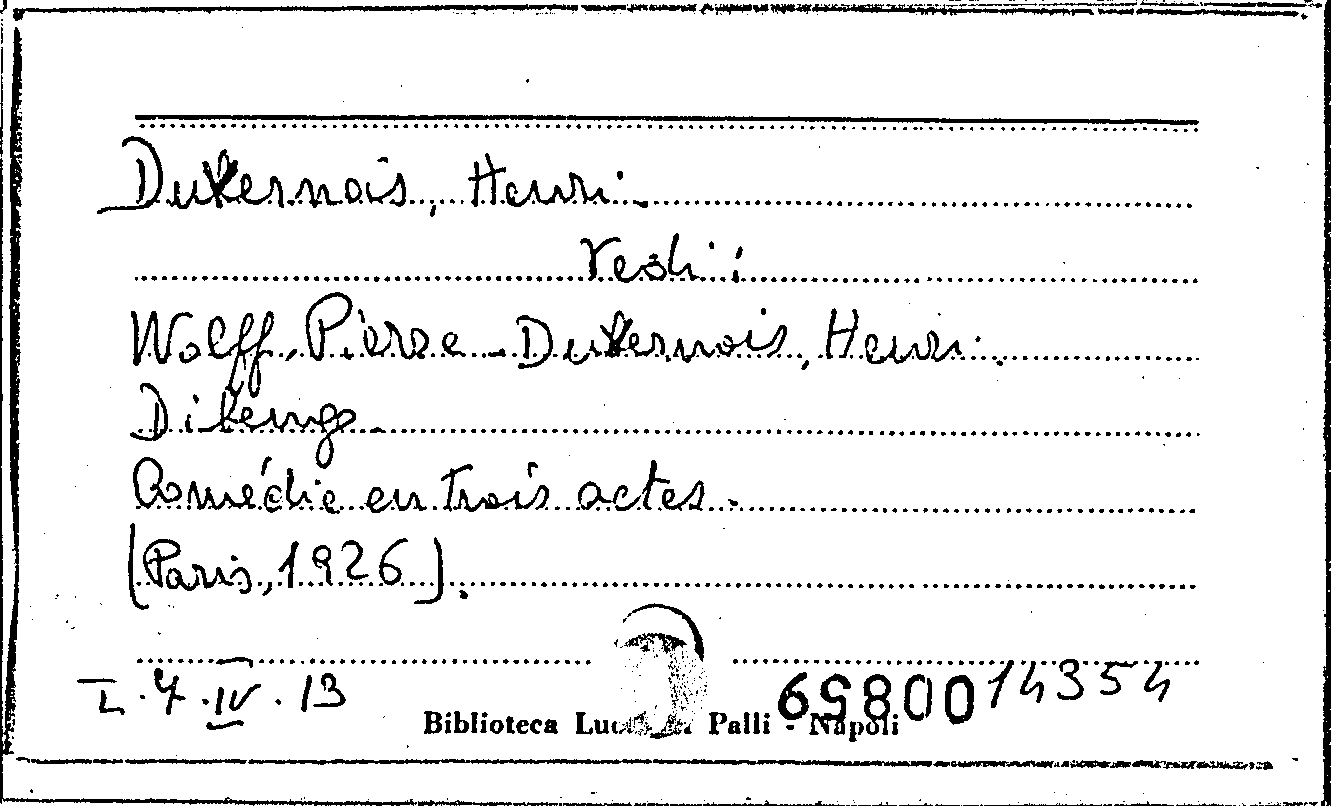 Duvernois, Henri.
Vedi:
Wolff, Pierre - Duvernois, Henri.
Comédie en trois actes.
[Paris, 1926].
L.4.IV.13
14354
Biblioteca Palli - Napoli